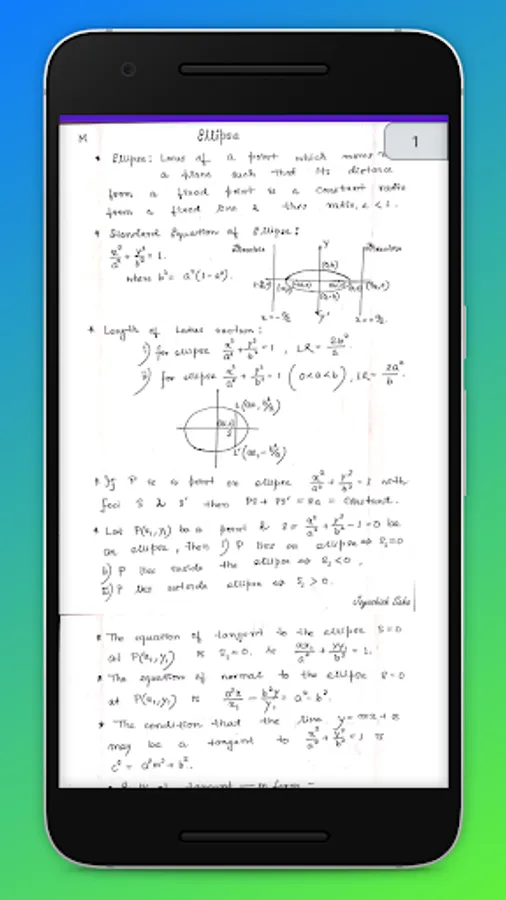 1
M
Ellipse
* Ellipse: Locus of a point which moves
a plane such that its distance
from a fixed point is a constant ratio
from a fixed line & this ratio, e < 1.
* Standard Equation of Ellipse:
x²/a² + y²/b² = 1.
where b² = a²(1-e²).
Y
Y'
* Length of Latus rectum:
i) for ellipse x²/a² + y²/b² = 1, LR = 2b²/a.
ii) for ellipse x²/a² + y²/b² = 1 (0<a<b), LR = 2a²/b.
L(ae, b²/a)
L'(ae, -b²/a)
* If P is a point on ellipse x²/a² + y²/b² = 1 with
foci S & S' then PS + PS' = 2a = constant.
* Let P(x₁,y₁) be a point & S = x²/a² + y²/b² - 1 = 0 be
an ellipse, then i) P lies on ellipse ⇔ S₁=0
ii) P lies inside the ellipse ⇔ S₁<0,
iii) P lies outside ellipse ⇔ S₁ > 0.
* The equation of tangent to the ellipse S=0
at P(x₁,y₁) is S₁=0. is xx₁/a² + yy₁/b² = 1.
* The equation of normal to the ellipse S=0
at P(x₁,y₁) is a²x/x₁ - b²y/y₁ = a²-b².
* The condition that the line y=mx+c
may be a tangent to x²/a² + y²/b² = 1 is
c² = a²m² + b².